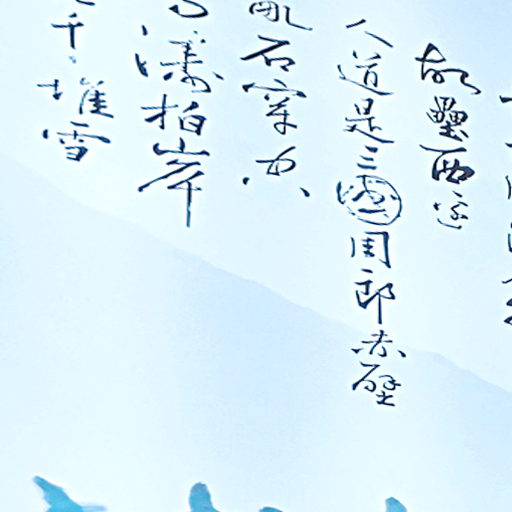 故壘西邊
人道是三國周郎赤壁
亂石穿空
濤拍岸
千堆雪